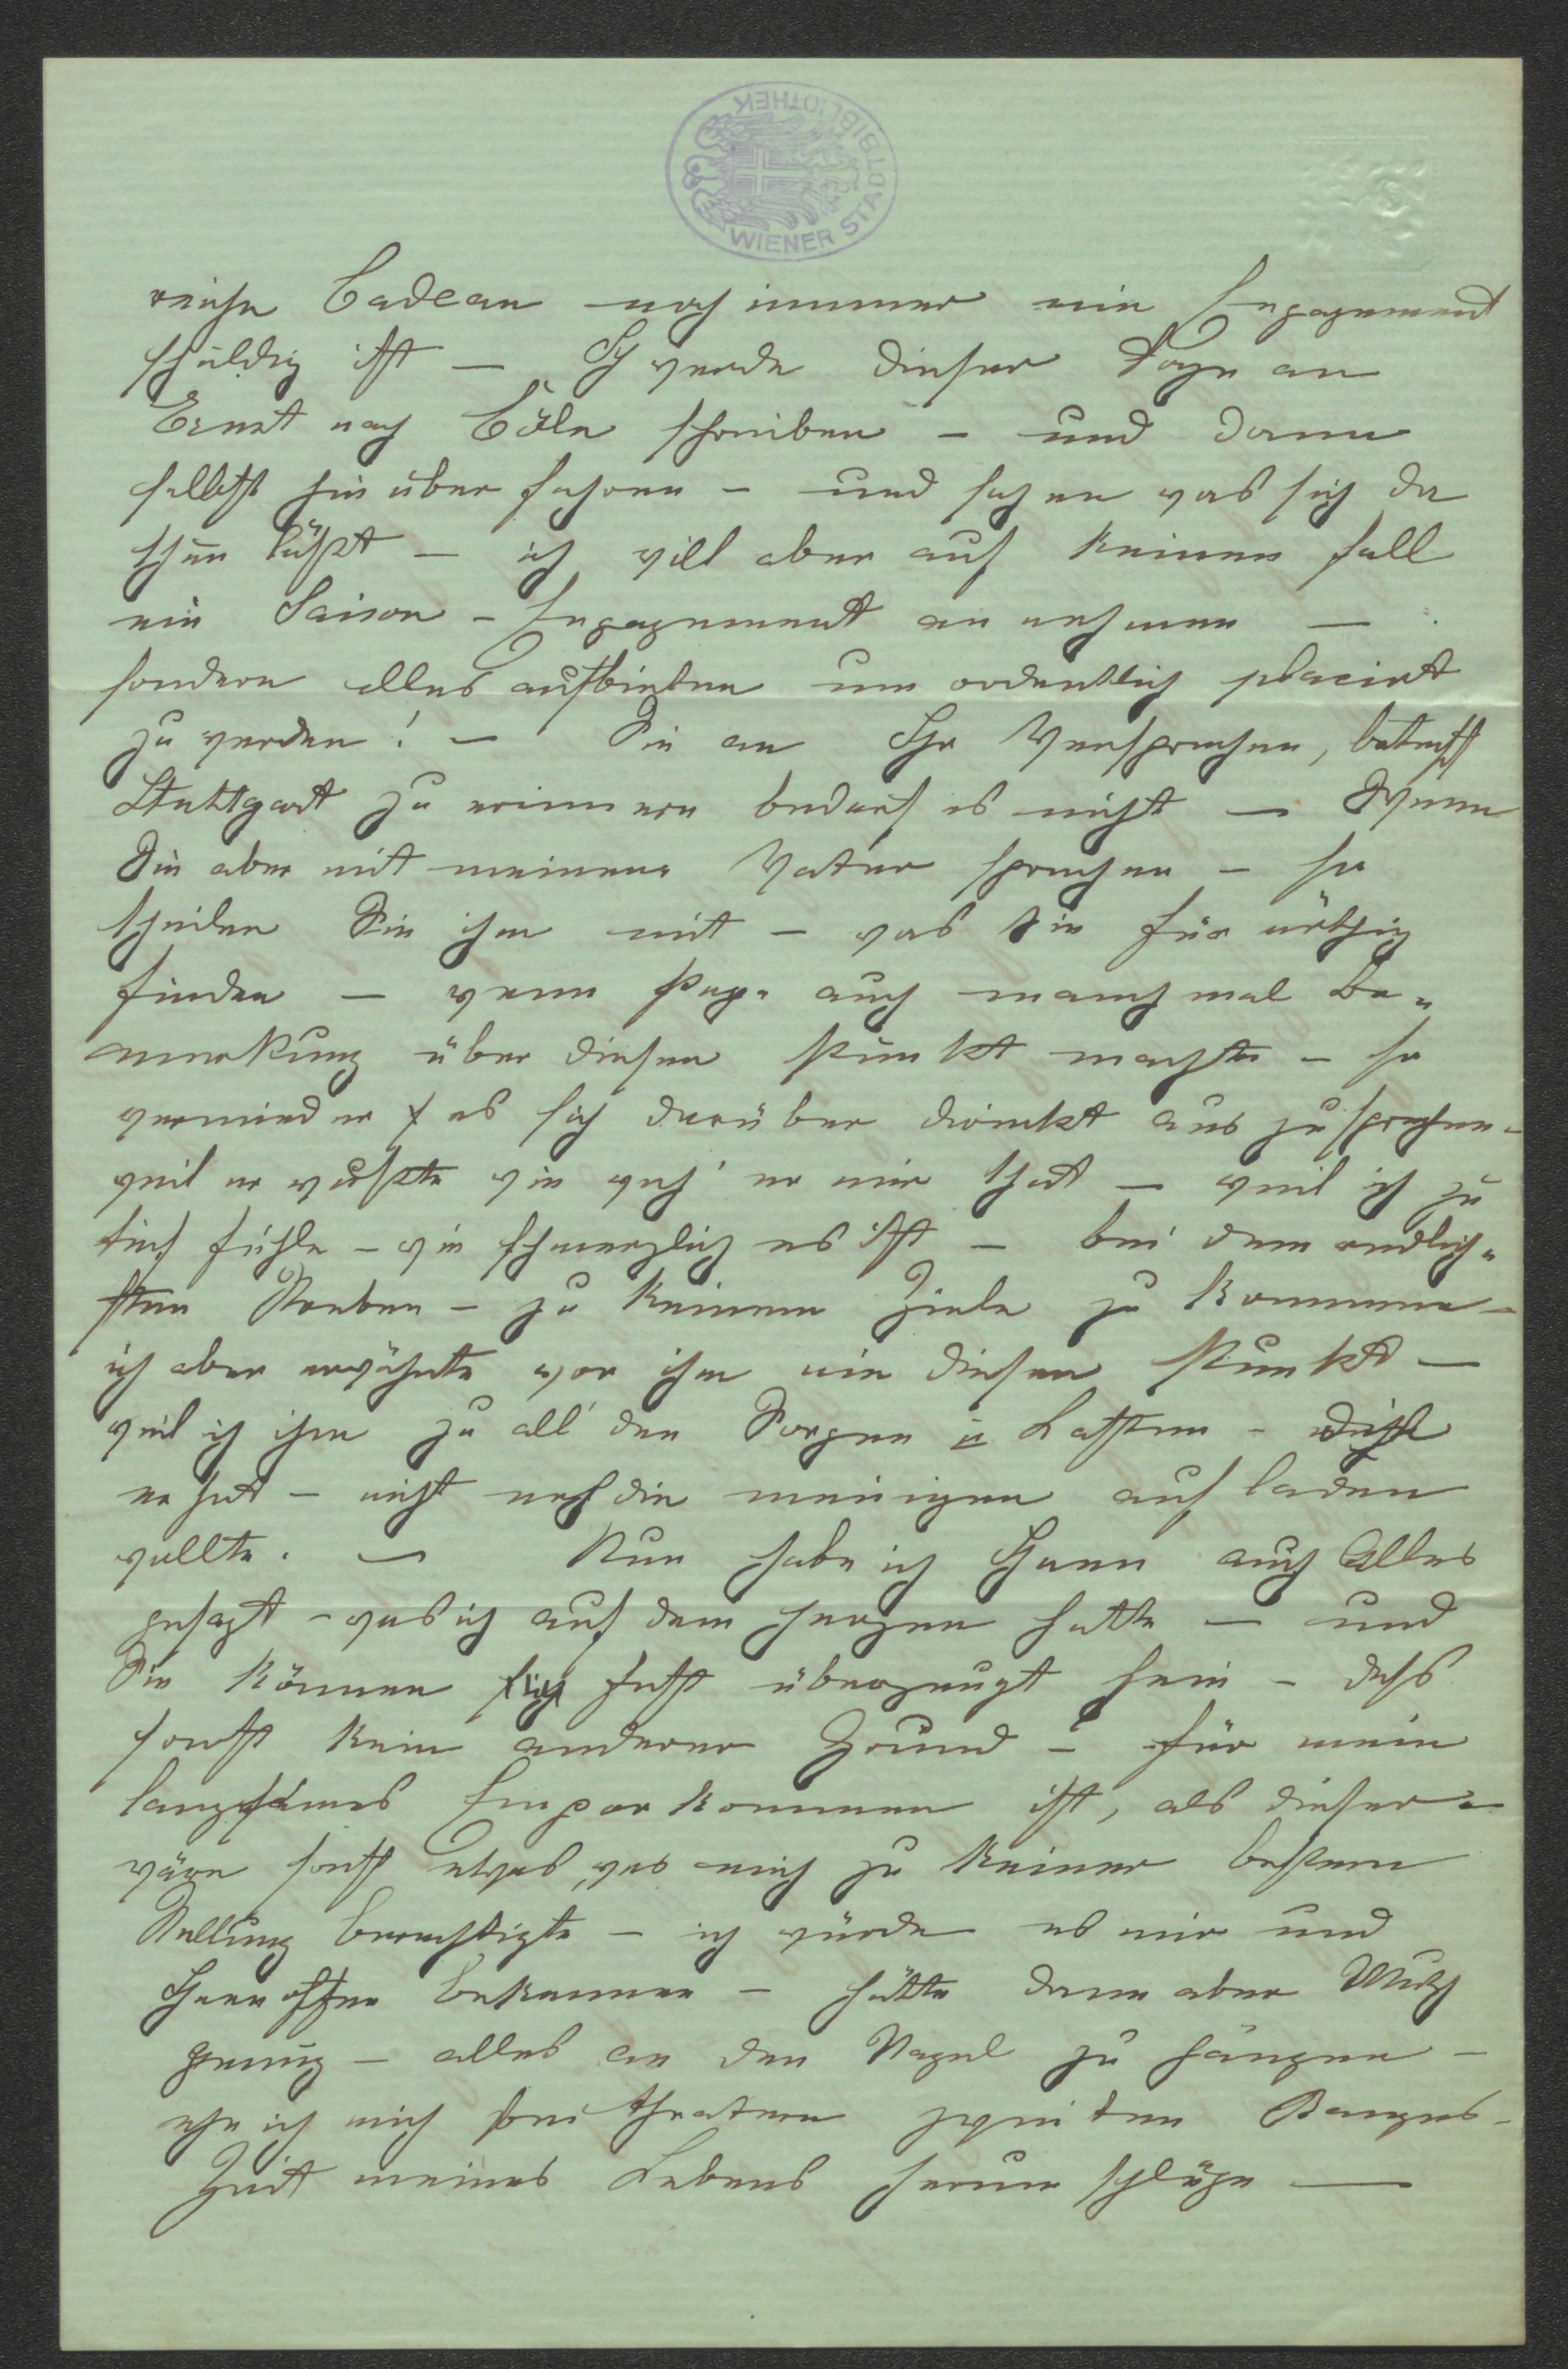 WIENER STADTBIBLIOTHEK
reiche Cadeau noch immer ein Engagement
schuldig ist — Ich werde dieser Tage an
Ernst nach Cöln schreiben – und dann
selbst hinüber fahren – und sehen was sich da
thun läßt – ich will aber auf keinen Fall
ein Saison-Engagement an nehmen —
sondern alles aufbieten um ordentlich placirt
zu werden! — Sie an Ihr Versprechen, betreff
Stuttgart zu erinnern bedarf es nicht — Wenn
Sie aber mit meinem Vater sprechen – so
theilen Sie ihm mit – was Sie für nöthig
finden — wenn Papa auch manchmal Be-
merkung über diesen Punkt machte – so
vermied er es sich darüber direkt aus zu sprechen –
weil er wußte wie weh' er mir that — weil ich zu
tief fühle – wie schmerzlich es ist – bei dem redlich-
sten Streben – zu keinem Ziele zu kommen –
ich aber erwähnte vor ihm nie diesen Punkt —
weil ich ihm zu all' den Sorgen u Lasten – die
er hat – nicht noch die meinigen auf laden
wollte. — Nun habe ich Ihnen auch Alles
gesagt – was ich auf dem Herzen hatte — und
Sie können fest überzeugt sein – daß
sonst kein anderer Grund – für mein
langsames Empor kommen ist, als dieser –
wäre sonst etwas, was mich zu keiner bessern
Stellung berechtigte – ich würde es mir und
Ihnen offen bekennen – hätte dann aber Muth
genug – alles an den Nagel zu hängen –
ehe ich mich bei Theatern zweiten Ranges –
Zeit meines Lebens herum schlüge —